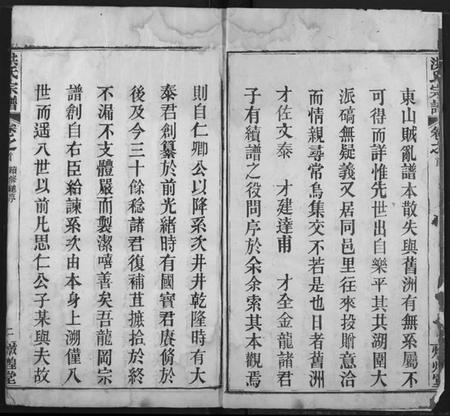 洪氏宗譜
卷之首
東山賊亂譜本散失與舊洲有無系屬不
可得而詳惟先世出自樂平其共湖圍大
派礄無疑義又居同邑里往來投贈意洽
而情親尋常烏集交不若是也日者舊洲
才佐文泰　才建達甫　才全金龍諸君
子有續譜之役問序於余余索其本觀焉
則自仁卿公以降系次井井乾隆時有大
泰君創纂於前光緒時有國寶君賡脩於
後及今三十餘稔諸君復補苴摭拾於終
不漏不支體嚴而製潔嘻善矣吾龍岡宗
譜創自右臣給諫系次由本身上溯僅八
世而遇八世以前凡思仁公子某與夫故
洪氏宗譜
卷之首
二
燉煌堂